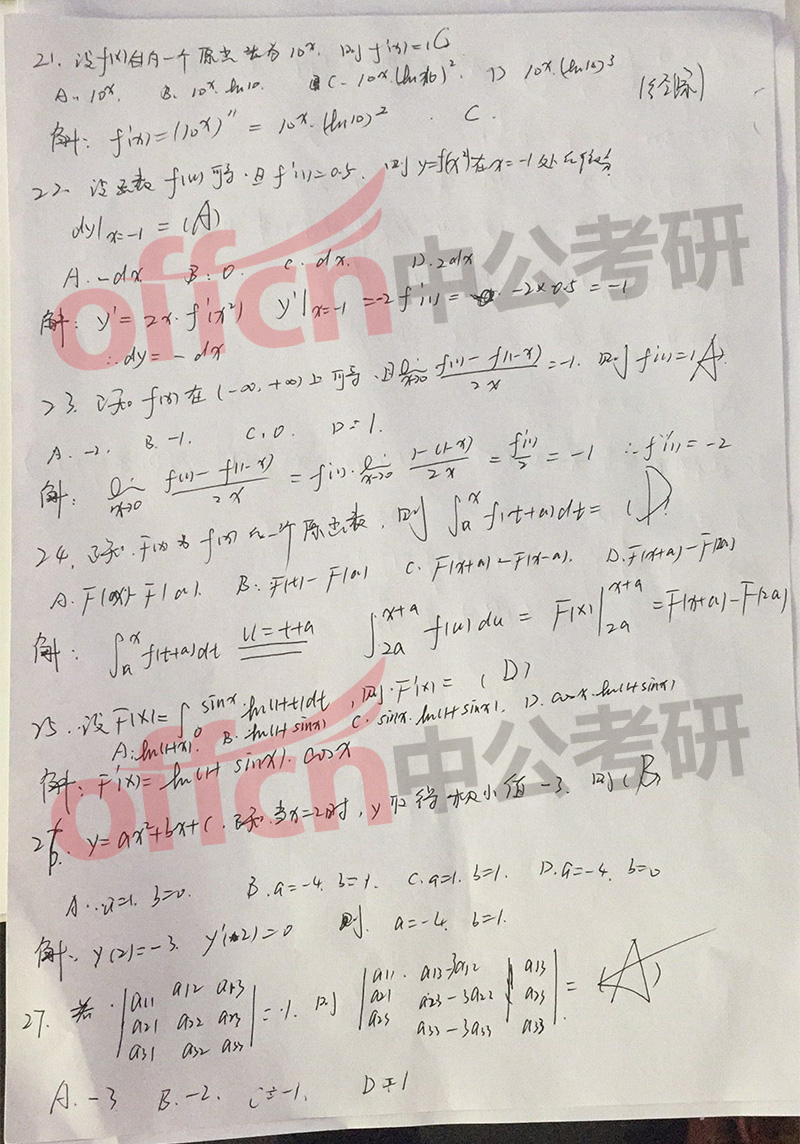 21. 设f(x)的一个原函数为10ˣ, 则f'(x)=(C
A. 10ˣ. B. 10ˣ.ln10. C. 10ˣ(ln10)². D 10ˣ.(ln10)³
(经济)
解: f'(x)=(10ˣ)''=10ˣ.(ln10)². C.
22. 设函数f(u)可导.且f'(1)=0.5. 则y=f(x²)在x=-1处
dy|x=-1 =(A)
A. -dx B: 0. C. dx. D. 2dx
解: y'=2x.f'(x²) y'|x=-1 =-2f'(1)= -2×0.5=-1
∴dy=-dx
23. 已知f(x)在(-∞,+∞)上可导.且lim x→0 f(1)-f(1-x)/2x=-1. 则f'(1)=(A).
A. -2. B. -1. C. 0. D=1.
解: lim x→0 f(1)-f(1-x)/2x = f'(1).lim x→0 1-(1-x)/2x = f'(1)/2 = -1 ∴f'(1)=-2
24. 已知.F(x)为f(x)的一个原函数, 则∫ₐˣ f(t+a)dt= (D).
A. F(x)-F(a). B: F(t)-F(a) C. F(x+a)-F(x-a). D. F(x+a)-F(2a)
解: ∫ₐˣ f(t+a)dt u=t+a ∫ 2a x+a f(u)du = F(x)| 2a x+a =F(x+a)-F(2a)
25. 设F(x)=∫ 0 sinx ln(1+t)dt, 则.F'(x)= (D)
A: ln(1+x). B. ln(1+sinx) C. sinx.ln(1+sinx). D. cosx.ln(1+sinx)
解: F'(x)=ln(1+sinx).cosx
26. y=ax²+bx+c.已知.当x=2时, y取得极小值-3. 则(B)
A. a=1. b=0. B. a=-4. b=1. C. a=1. b=1. D. a=-4. b=0
解: y(2)=-3. y'(2)=0 则. a=-4. b=1.
27. 若 |a11 a12 a13 =-1. 则 |a11. a13-3a12 | a13
a21 a22 a23 a21 a23-3a22 a23 = (A)
a31 a32 a33 a23 a33-3a33 a33
A. -3 B. -2. C=-1. D=1
offcn中公考研
offcn中公考研